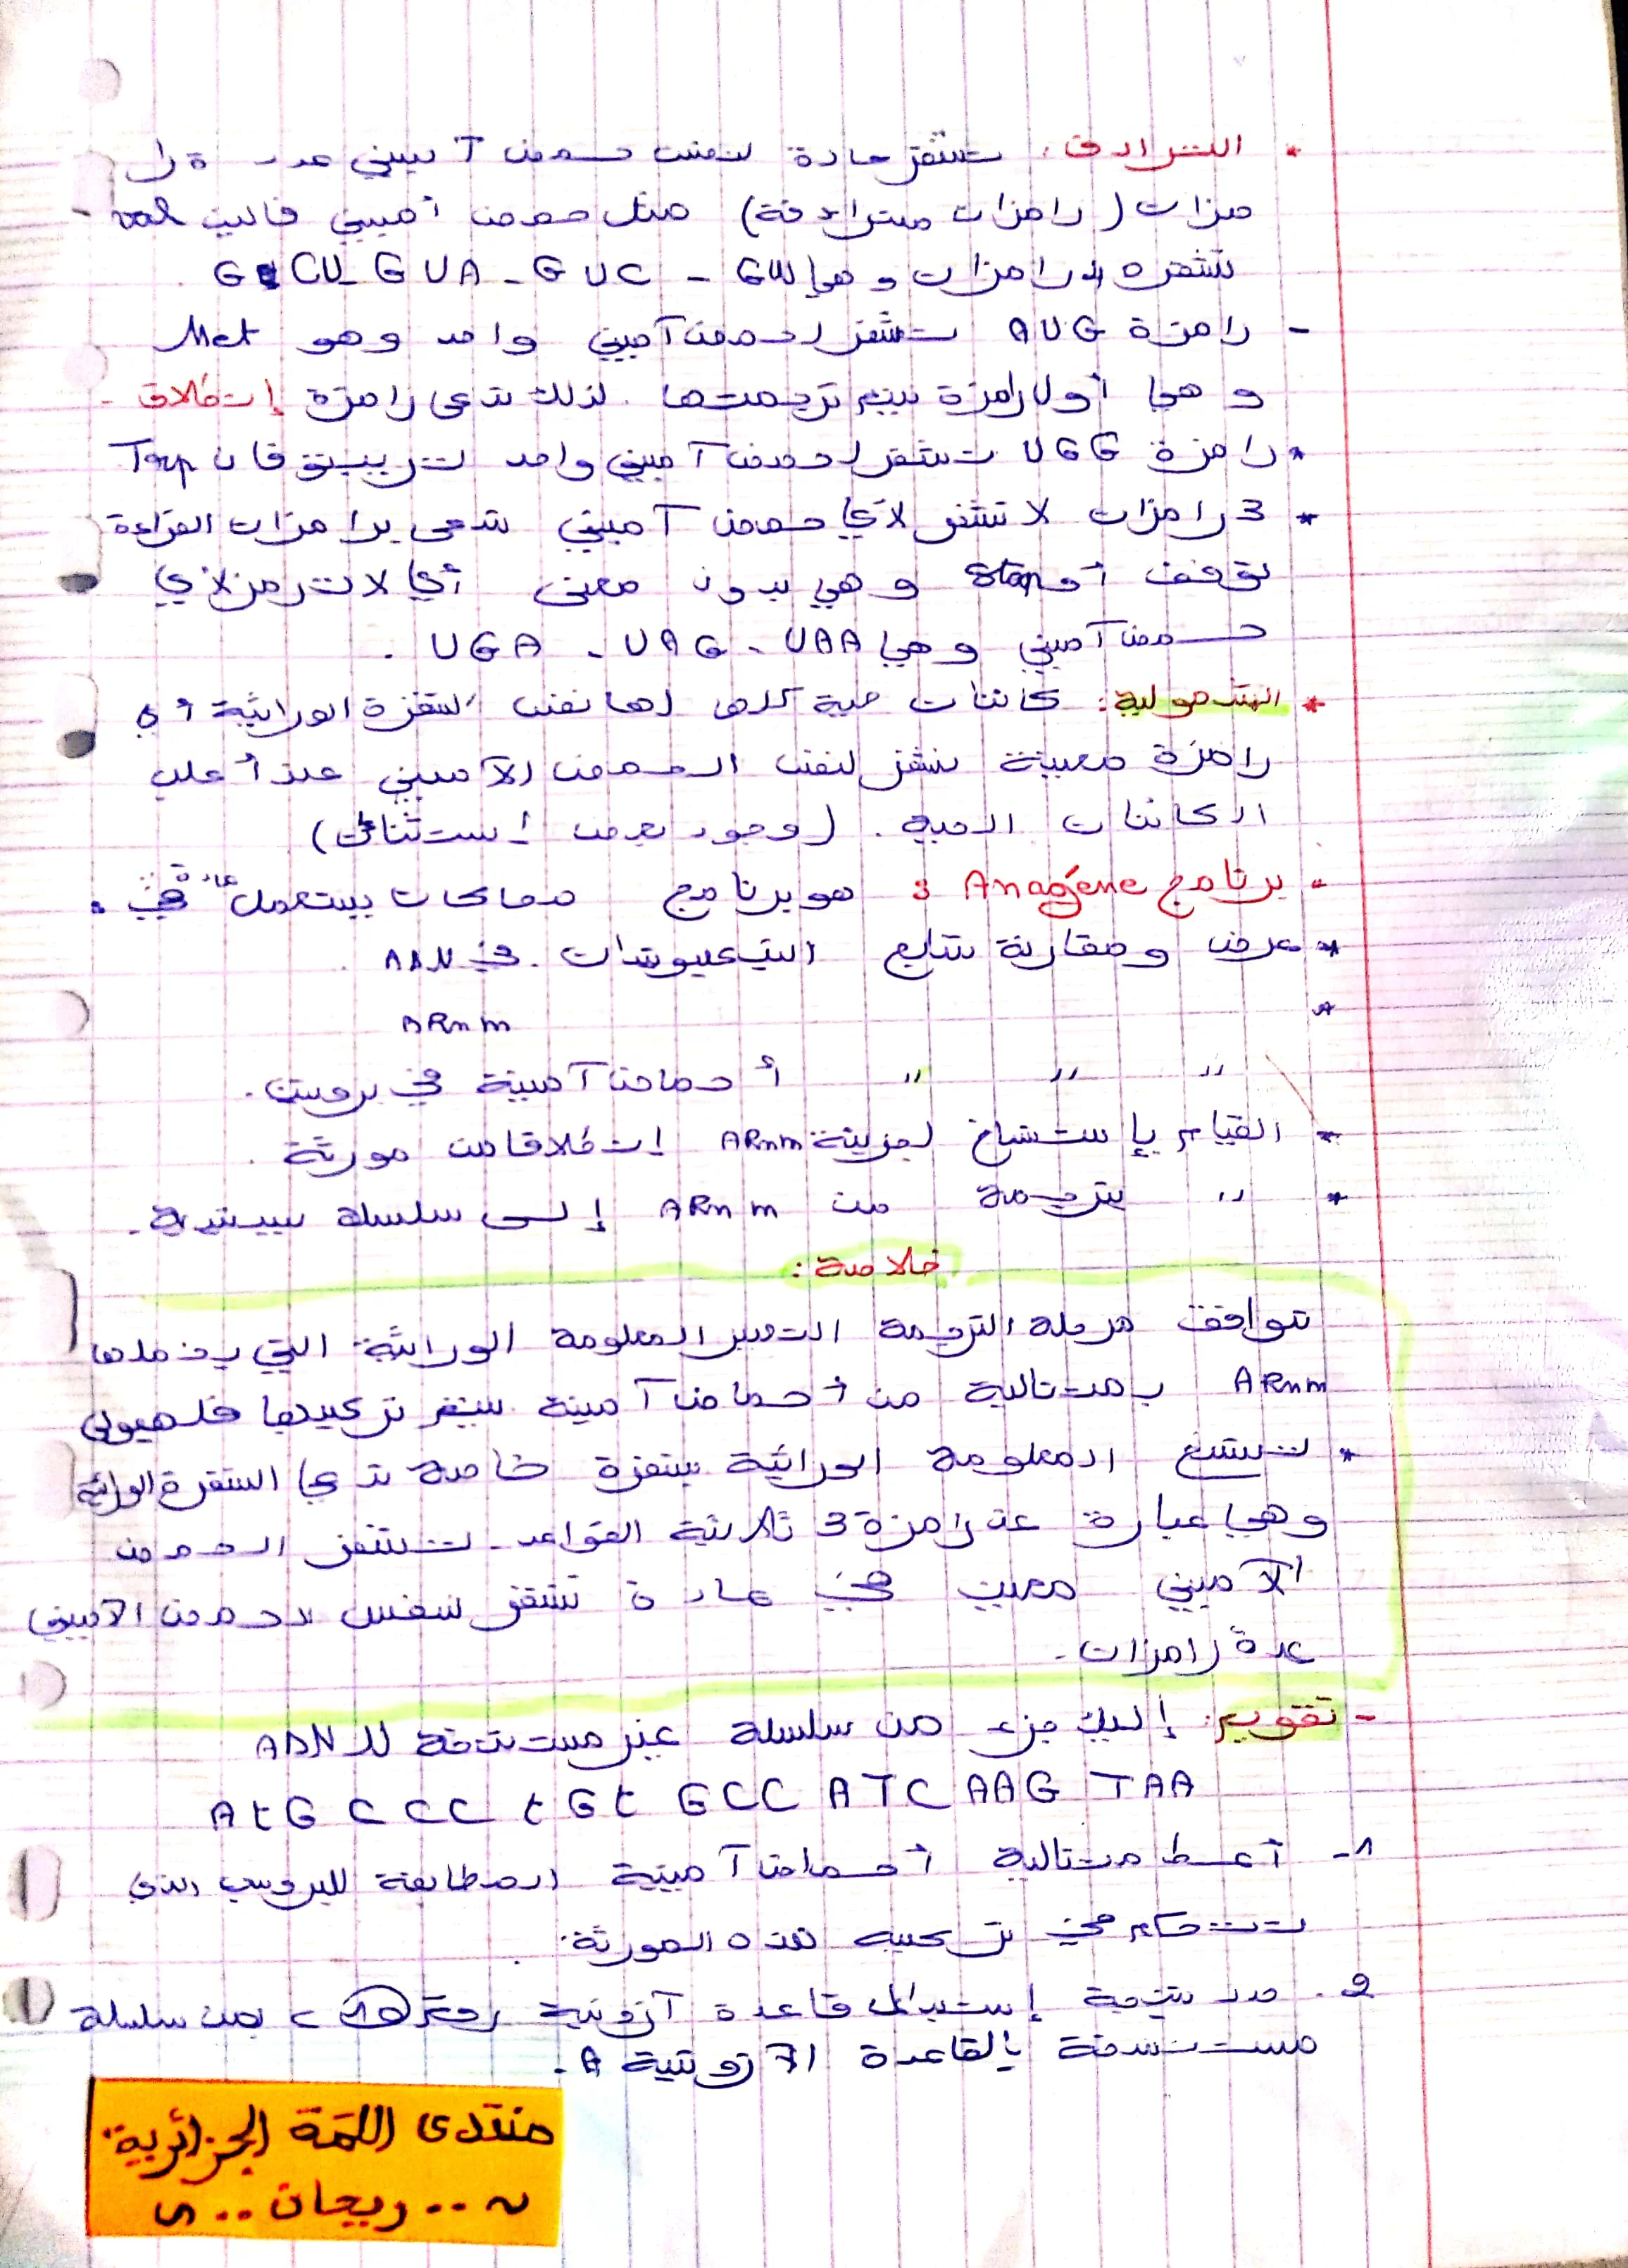 * الترادف: تشفر عادة لنفس حمض آميني عدة را
مزات (رامزات مترادفة) مثل حمض أميني فالين val
تشفره 4 رامزات وهي GUU - GUC - GUA - GCU .
- رامزة AUG تشفر لحمض آميني واحد وهو Met
وهي أول رامزة يتم ترجمتها . لذلك تدعى رامزة إنطلاق -
* رامزة UGG تشفر لحمض آميني واحد تريبتوفان Trp
* 3 رامزات لا تشفر لأي حمض آميني تدعى برامزات القراءة
توقف أو stop وهي بدون معنى أي لا ترمز لأي
حمض آميني وهي UGA - UAG - UAA .
* الشمولية: كائنات حية كلها لها نفس الشفرة الوراثية أي
رامزة معينة تشفر لنفس الحمض الآميني عند أغلب
الكائنات الحية . (وجود بعض إستثنائات)
- برنامج Anagéne : هو برنامج محاكات يستعمل عادة في :
* عرض ومقارنة تتابع النيكليوتيدات في ADN .
* ARnm
" " " أحماض آمينة في بروتين .
* القيام بإستنساخ لجزيئة ARnm إنطلاقا من مورثة .
* " بترجمة من ARnm إلى سلسلة ببتيدية .
خلاصة :
توافق مرحلة الترجمة التعبير المعلومة الوراثية التي يحملها
ARnm بمتتالية من أحماض آمينة يتم تركيبها في هيولى
* تنسخ المعلومة الوراثية بشفرة خاصة تدعى الشفرة الوراثية
وهي عبارة عن رامزة 3 ثلاثية القواعد . تشفر الحمض
الآميني معين في عادة تشفر لنفس الحمض الآميني
عدة رامزات .
- تقويم : إليك جزء من سلسلة غير مستنسخة للـ ADN
AtG CCC tGt GCC ATC AAG TAA
1- أعط متتالية أحماض آمينية المطابقة للبروتين الذي
تتحكم في تركيبه هذه المورثة .
2- حدد نتيجة إستبدال قاعدة آزوتية رقم 10 من سلسلة
مستنسخة بالقاعدة الآزوتية A .
منتدى اللمة الجزائرية
~ .. ريحان .. ~